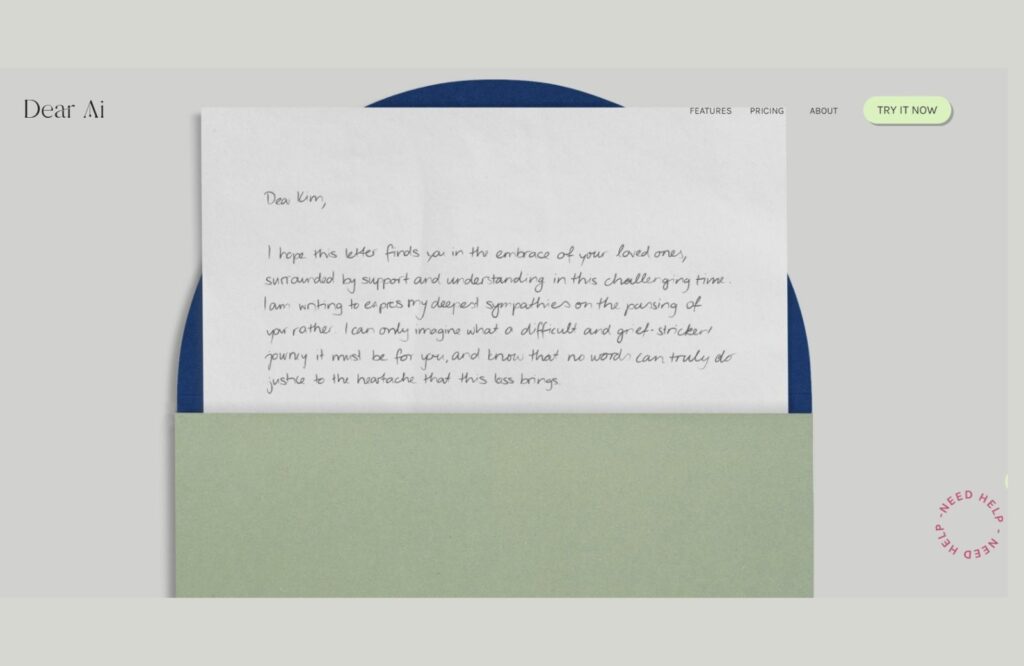 Dear Ai
FEATURES
PRICING
ABOUT
TRY IT NOW
Dear Kim,
I hope this letter finds you in the embrace of your loved ones,
surrounded by support and understanding in this challenging time.
I am writing to expres my deepest sympathies on the passing of
your father. I can only imagine what a difficult and grief-stricken
journey it must be for you, and know that no words can truly do
justice to the heartache that this loss brings.
NEED HELP - NEED HELP -